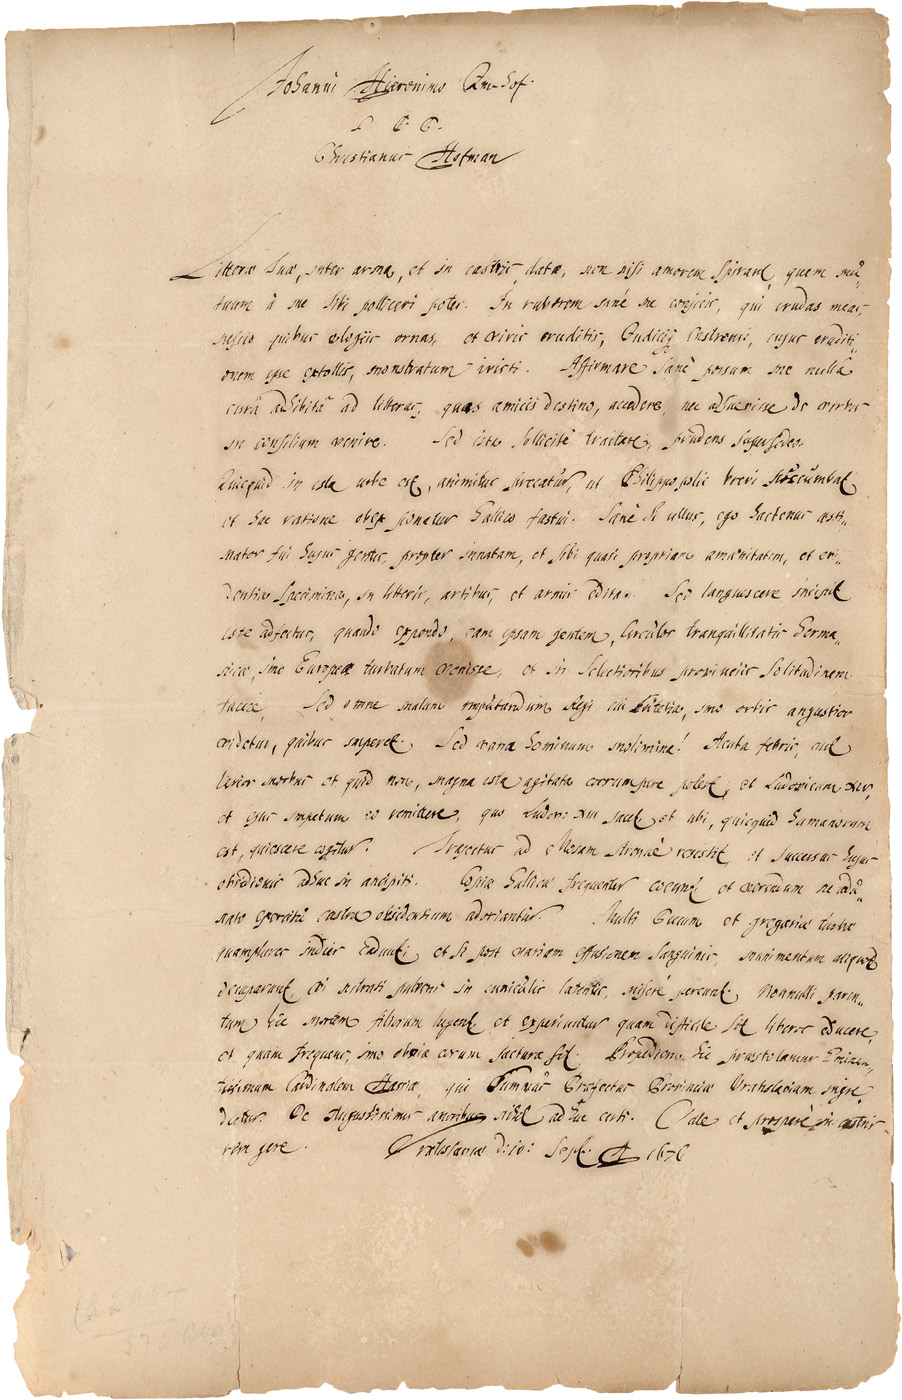 Johanni Hieronimo Im-hof.
S. P. D.
Christianus Hofman
Litteræ tuæ, inter arma, et in castris datæ, non nisi amorem spirant, quem mu-
tuum à me tibi polliceri potes. In ruborem sanè me cogicis, qui crudas meas,
nescio quibus elogijs ornas, et viris eruditis, Castrensi, cujus erudíti-
onem ipse extollis, monstratum ivisti. Affirmare sanè possum me nullâ
curâ adhibitâ ad litteras, quas amicis destino, accedere, nec adsuevisse de verbis
in consilium venire. Sed ista sollicitè tractare, prudens supersedeo.
Quicquid in ista urbe est, animitus precatur, ut Philippopolis brevi succumbat
et hac ratione obex ponatur Gallico fastui. Sanè si ullus, ego hactenus æsti-
mator fui hujus gentis, propter innatam, et sibi quasi propriam amœnitatem, et evi-
dentia specimina, in literis, artibus, et armis edita. Sed languescere incipit
iste adfectus, quando expendo, eam ipsam gentem, circulos tranquillitatis Germa-
nicæ, imo Europææ turbatum venisse, et in selectioribus provincijs solitudinem
facere. Sed omne malum imputandum Regi cui Lutetia, imo orbis angustior
videtur, quibus imperet. Sed vana hominum molimina! Acuta febris, aut
levior morbus et quid non, magna ista agitata corrumpere potest, et Ludovicum XIV,
et ejus impetum eo remittere, quo Ludov: XIII jacet, et ubi, quicquid humanorum
est, quiescere cogitur. Trajectus ad Mosam strenuè resistit, et successus hujus
obsidionis adhuc in ancipiti. Copiæ Gallicæ frequenter coeunt et verendum ne adu-
nato exercitu castra obsidentium adoriantur. Multi Ducum et gregariæ turbæ
quamplures indies caduci, et si post variam effusionem sanguinis, munimentum aliquod
occuparunt, vi nitrati pulveris in cuniculis latentis, miserè pereunt. Nonnulli paren-
tum hîc mortem filiorum lugent, et experiuntur quam difficile sit liberos educere,
et quam frequens, imo obvia eorum jactura sit. Propediem hic præstolamur Eminen-
tissimum Cardinalem Hassiæ, qui summus Præfectus Provinciæ Vratislaviam ingre-
dietur. De Augustissimis amoribus nihil adhuc certi. Vale et prosperè in castris
rem gere. Vratislaviæ d: 10: Sept. A 1676